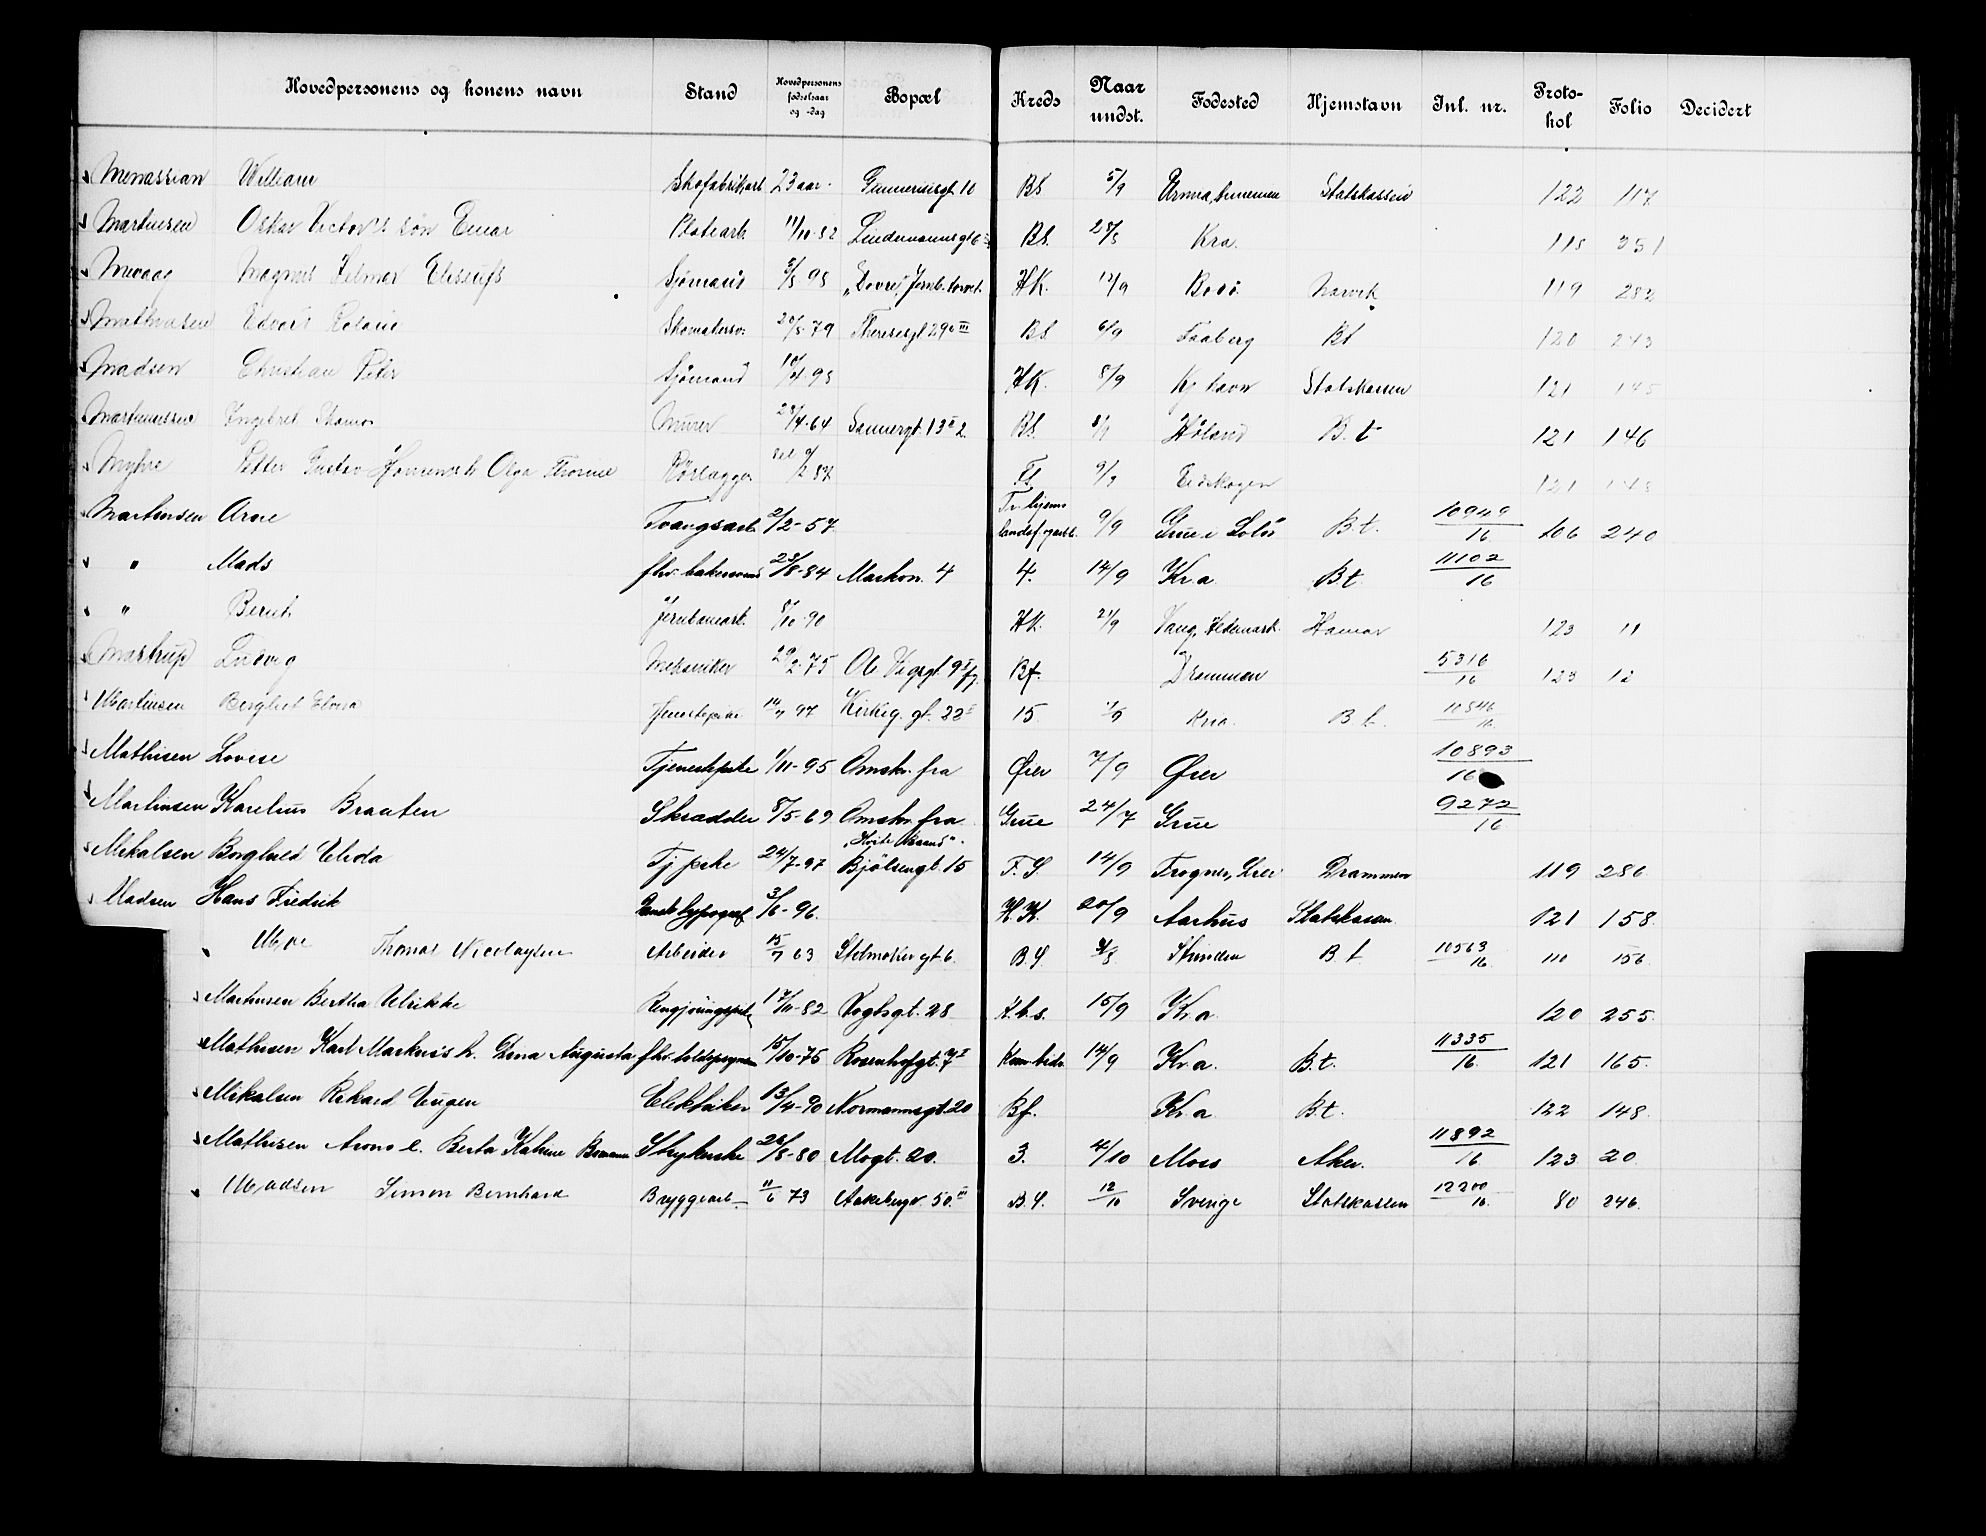 Hovedpersonens og konens navn Stand Hovedpersonens fødselsaar og -dag Bopæl Kreds Naar undst. Fødested Hjemstavn Inl. nr. Protokol Folio Decidert
Menassian William Skofabrikarb 23 aar. Gunnerusgt 10 BS 5/9 Statskassen 122 117
Martinsen Oskar Victor's søn Einar Platearb. 11/10-82 BS. 28/8 Kra. 118 251
Mevaag Magnus Hilmar Eliseufs Sjømand 5/5 95 „Dovre", Jernb. torvet HK. 12/9 Bodø Narvik 119 282
Mathiasen Edvard Roland Skomakersv. 20/5-79 Theresesgt 29 III BS. 6/9 Faaberg Bt 120 243
Madsen Christian Peter Sjømand 10/4-95 HK. 8/9 Kj.havn Statskassen 121 145
Martinussen Ingebret Thomas Murer 28/4-64 Sannergt. 13 II 2. BS. Høland B.t 121 146
Myhre Petter Gustav Olga Thorine Rørlægger 9/2 87 9/9 Eidskogen 121 148
Martinsen Arne Tvangsarb 2/2-57 Tr. hjems landsf. 9/9 Grue i Solør B.t. 10949/16 106 240
" Mads fhv. bakersvend 28/8-84 Markvn. 4 4. 14/9 Kr.a Bt. 11102/16
" Bernt Jernbanearb. 8/10-90 HK. 21/9 Vang, Hedemark. Hamar 123 11
Mastrup Ludvig Mekaniker 29/2-75 Ol. Vigsgt. 9 I fg. Bf. Drammen 5316/16 123 12
Martinsen Bergliot Elvira Tjenestepike 14/7 97 Kirkeg. gt. 22 I 15 Kria. B t. 10546/16
Mathisen Lovise Tjenestepike 1/11-95 Omskr. fra Øier 7/9 Øier 10893/16
Martinsen Karelius Braaten Skrædder 8/5-69 Omskr. fra Grue 24/7 Grue 9272/16
Mikalsen Borghild Elida Tj pike 24/7-97 „Hvite Baand". Bjølsengt. 15 F.S. 14/9 Frogner, Lier Drammen 119 286
Madsen Hans Fredrik Dansk typograf 3/6-96. H.K. 20/9 Aarhus Statskassen 121 158.
Moe Thomas Nicolaysen Arbeider 15/7 63 Stolmaker gt 6. B.S. Strinden B t 10563/16. 110 156
Martinsen Bertha Ulrikke Rengjøringspike 17/11-82 Vogtsgt. 28 K.b.s. 15/9 Kr.a 120 255.
Mathisen Karl Markus's h. Lina Augusta fhv. 15/10-75 Rosenhofgt. 7 I 14/9 Kr.a. B.t. 11335/16. 121 165.
Mikalsen Rikard Eugen Elektriker 13/4-90 Normannsgt. 20 Bf. Kr a B.t. 122 148.
Mathisen Arono e. Berta Katrine Strykerske 26/8-80 Mogt. 20. 3. 4/10 Moss Aker. 11892/16 123 20
Madsen Simon Bernhard Bryggearb. 11/6 73 Aakebergv. 50. III B.S. 12/10 Sverige Statskassen 12200/16. 80 246.